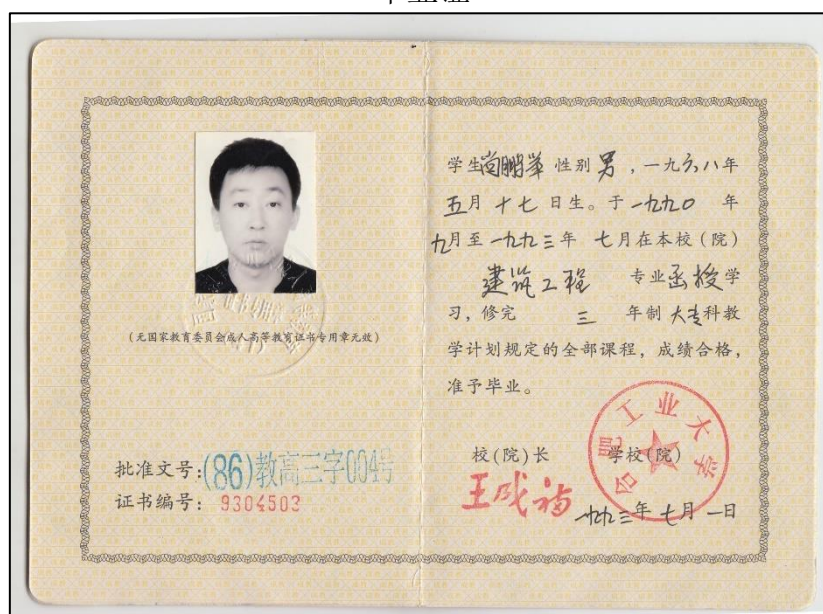 (无国家教育委员会成人高等教育证书专用章无效)
批准文号:(86)教高三字004号
证书编号: 9304503
学生尚鹏举 性别 男 ,一九六八年
五月十七日生。于一九九〇 年
九月至一九九三年 七月在本校(院)
建筑工程 专业函授学
习,修完 三 年制大专科教
学计划规定的全部课程,成绩合格,
准予毕业。
校(院)长 学校(院)
王成福
合肥工业大学
一九九三年七月一日